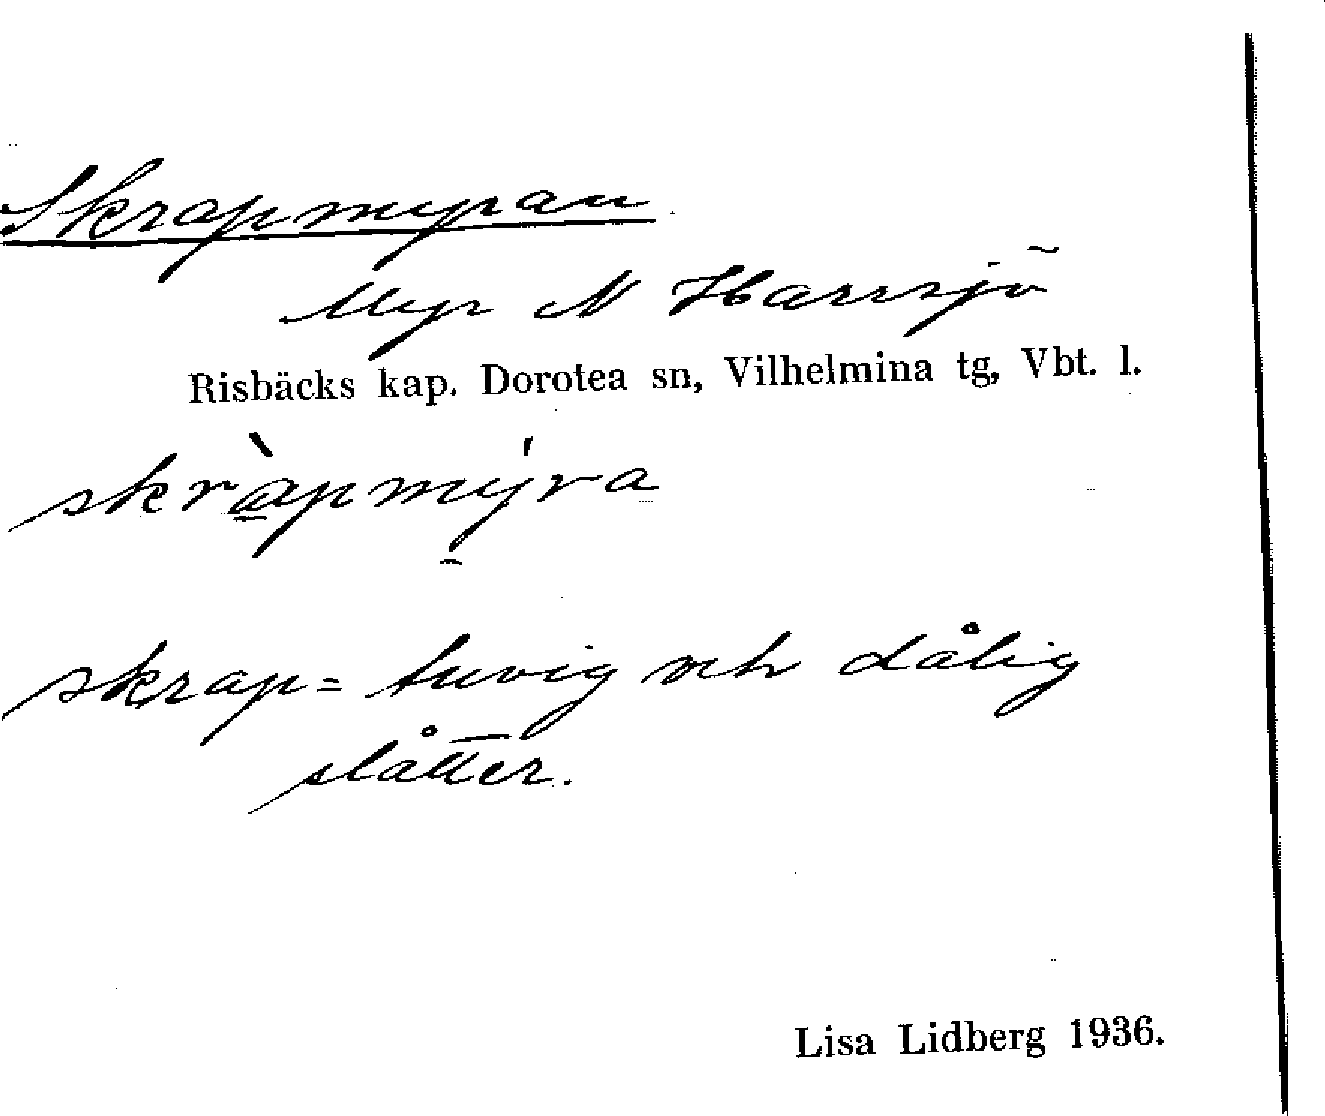 Skrapmyran
Myr N Harrsjö
Risbäcks kap. Dorotea sn, Vilhelmina tg, Vbt. l.
skràpmy̍ra
skrap = tuvig och dålig
slåtter.
Lisa Lidberg 1936.